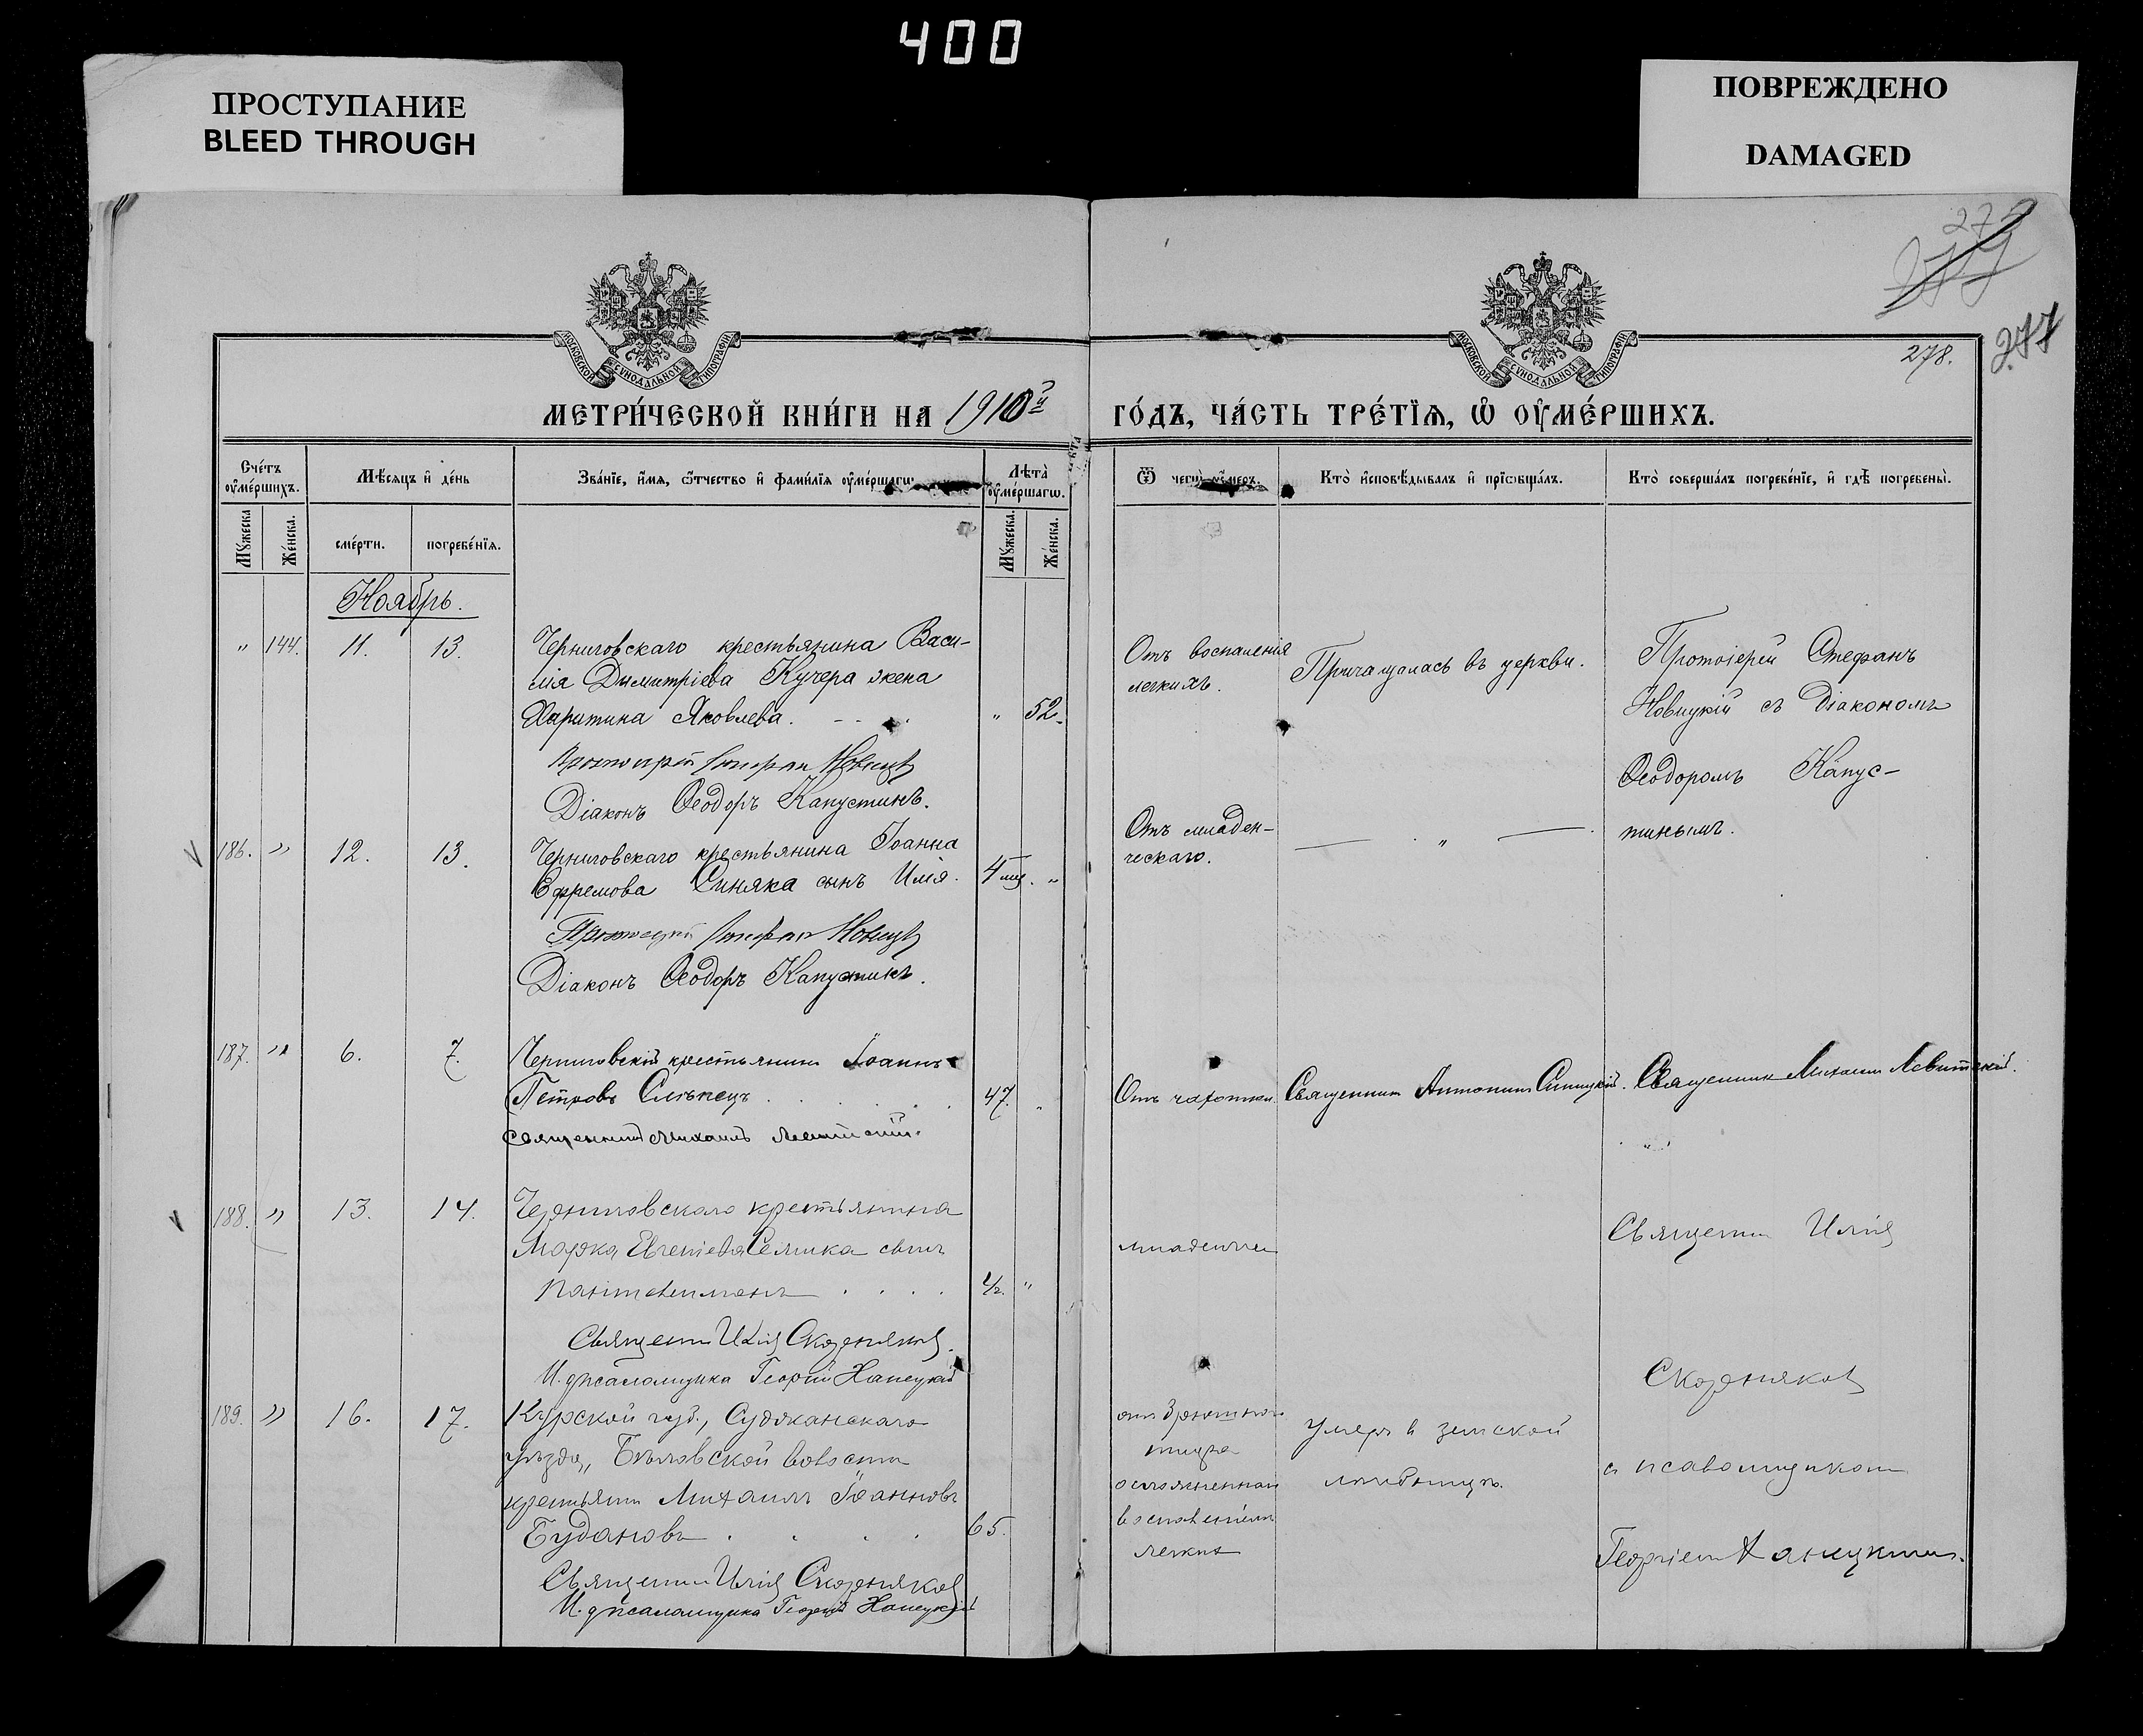 400
ПРОСТУПАНИЕ
BLEED THROUGH
ПОВРЕЖДЕНО
DAMAGED
277
278.
МОСКОВСКОЙ СѴНОДАЛЬНОЙ ТИПОГРАФІИ
МОСКОВСКОЙ СѴНОДАЛЬНОЙ ТИПОГРАФІИ
МЕТРИ́ЧЕСКОЙ КНИ́ГИ НА 1910й ГО́ДЪ, ЧА́СТЬ ТРЕ́ТЇѦ, Ѡ҆ ОУ҆МЕ́РШИХЪ.
Сче́тъ оу҆ме́ршихъ.
Мѣ́сяцъ и҆ де́нь
Зва́нїе, и҆́мя, ѻ҆́тчество и҆ фами́лїя оу҆ме́ршагѡ
Лѣта̀ оу҆ме́ршагѡ.
Ѿ чегѡ̀ оу҆́меръ.
Кто̀ и҆сповѣ́дывалъ и҆ прїѡбща́лъ.
Кто̀ соверша́лъ погребе́нїе, и҆ гдѣ̀ погребены̀.
Мꙋ́жеска
Же́нска.
сме́рти.
погребе́нїя.
Мꙋ́жеска.
Же́нска.
Ноябрь.
" 144. 11. 13.
Черниговскаго крестьянина Васи-
лія Дымитріева Кучера жена
Харитина Яковлева. " 52.
Протоіерей Стефан Новицкій
Діаконъ Ѳеодоръ Капустинъ.
Отъ воспаленія
легкихъ.
Причащалась въ церкви.
Протоіерей Стефанъ
Новицкій съ Діакономъ
Ѳеодоромъ Капус-
тинымъ.
186. " 12. 13.
Черниговскаго крестьянина Іоанна
Ефремова Синяка сынъ Илія. 4 мц. "
Протоіерей Стефан Новицкій
Діаконъ Ѳеодоръ Капустинъ.
Отъ младен-
ческаго.
— " —
187. " 6. 7.
Черниговскій крестьянинъ Іоаннъ
Петровъ Слѣпецъ 47. "
Священникъ Михаилъ Левитскій.
Отъ чахотки.
Священникъ Антонин Синицкій.
Священникъ Михаилъ Левитскій.
188. " 13. 14.
Черниговскаго крестьянина
Марка Евгеніева Селика сынъ
Пантелеимонъ 1/2. "
Священникъ Илія Скорняков.
И. д. псаломщика Георгій Ханецкій
Священникъ Илія
Скорняков
189. " 16. 17.
Курской губ., Суджанскаго
уѣзда, Бѣловской волости
крестьянин Михаилъ Іоанновъ
Будановъ 65.
Священникъ Илія Скорняков
И. д. псаломщика Георгій Ханецкій
от брюшного
тифа
осложненнаго
воспаленіем
легкихъ
умеръ в земской
лѣчебницѣ.
с псаломщиком
Георгіем Ханецким.